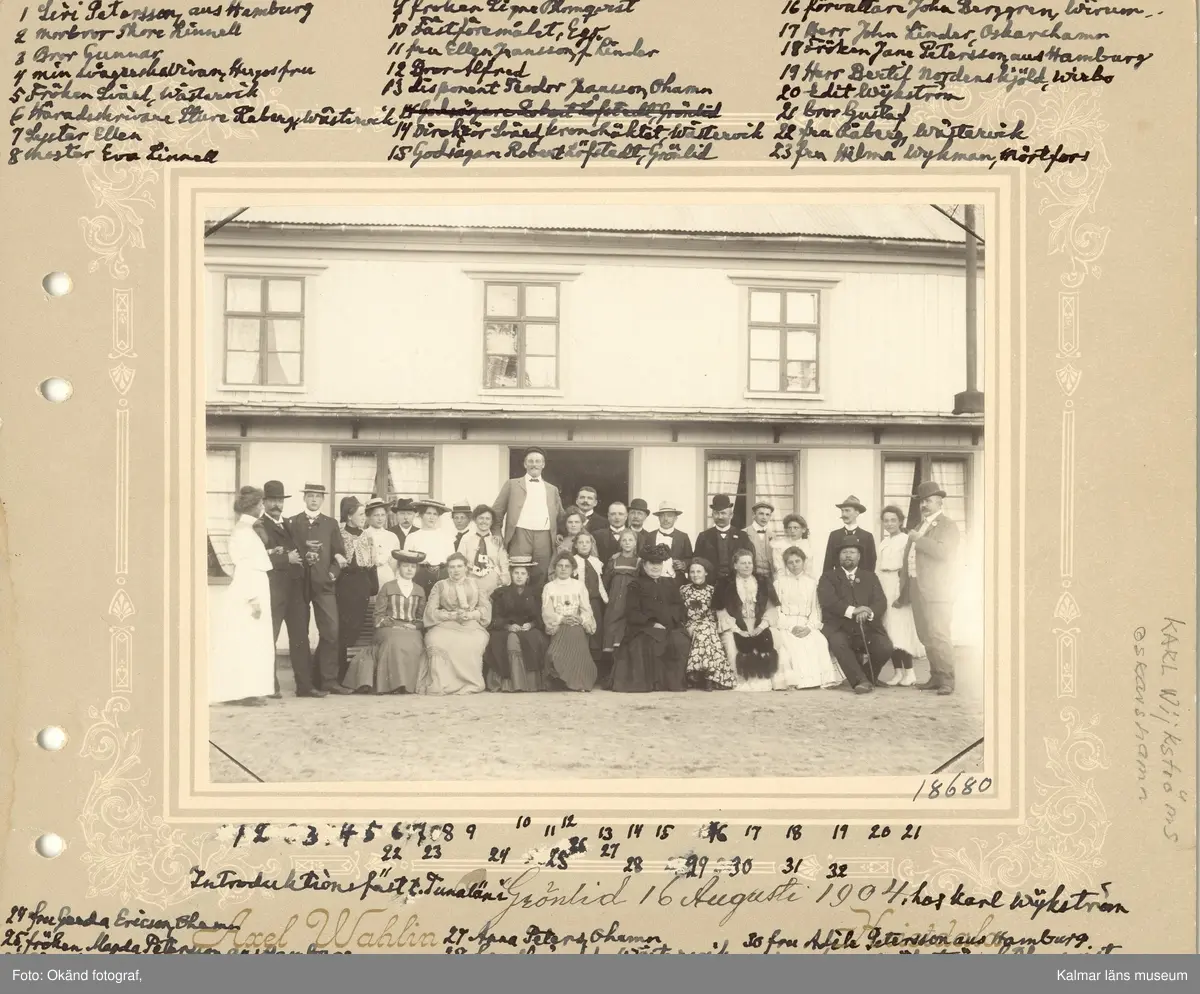 1 Siri Petersson, aus Hamburg
2 morbror Thore Linnell
3 Bror Gunnar
4 min svägerska Vivan, Hugos fru
5 Fröken Svärd, Wästervik
6 Häradsskrivare Sture Råberg, Wästervik
7 Syster Ellen
8 moster Eva Linnell
9 fröken Signe Blomqvist
10 Fästföremålet, Egf.
11 fru Ellen Jeansson, f. Linder
12 Bror Alfred
13 Disponent Teodor Jeansson, Ohamn
14 Godsägare Robert Löfstedt, Grönlid
14 Direktör Svärd, kronohäktet, Wästervik
15 Godsägare Robert Löfstedt, Grönlid
16 förvaltare John Berggren, Wirum
17 Herr John Linder, Oskarshamn
18 Fröken Jane Petersson aus Hamburg
19 Herr Bertil Nordenskjöld, Wirbo
20 Edit Wijkström
21 Bror Gustaf
22 fru Råberg, Wästervik
23 fru Hilma Wykman, Mörtfors
18680
KARL Wijkströms
Oskarshamn
1 2 3 4 5 6 7 8 9 10 11 12 13 14 15 16 17 18 19 20 21
22 23 24 25 26 27 28 29 30 31 32
Introduktionsfäst t. Tunaläni Grönlid 16 Augusti 1904, hos Karl Wijkström
Axel Wahlin
24 fru Gerda Ericson, Ohamn
25, fröken Magda Petersson
27 Anna Peters, Ohamn
30 fru Adèle Petersson aus Hamburg
Foto: Okänd fotograf,
Kalmar läns museum